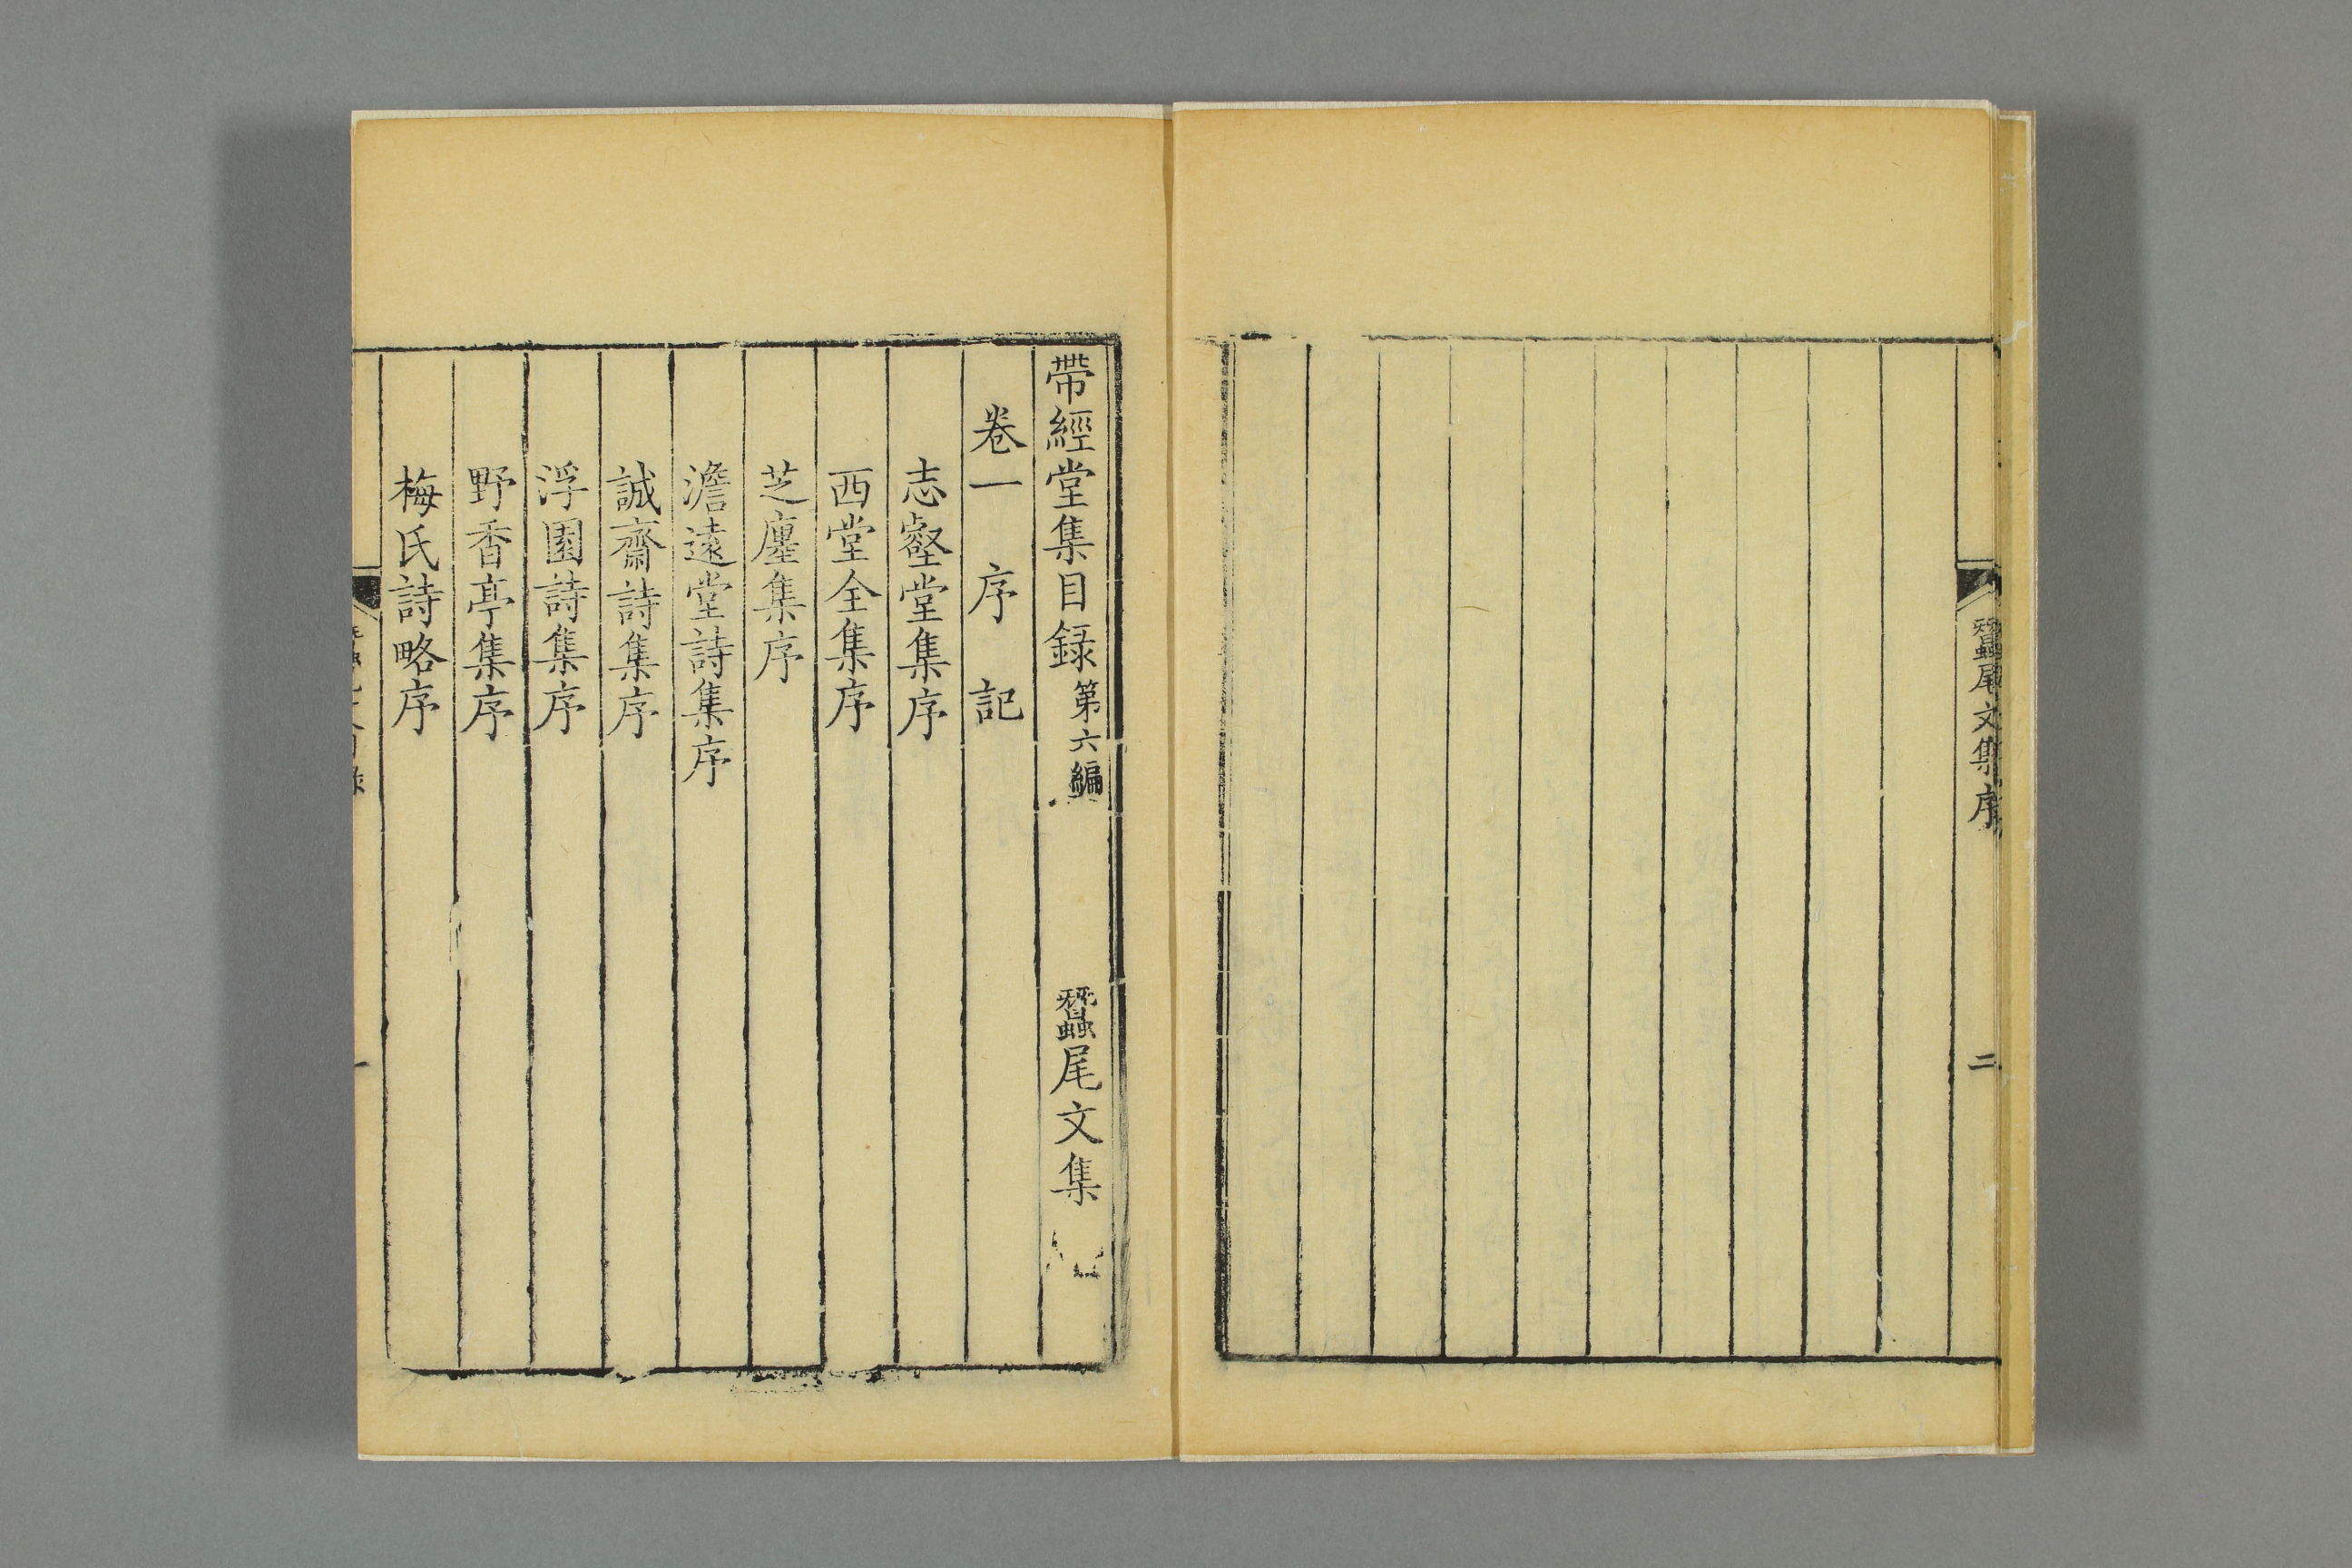 蠶尾文集序
二
帶經堂集目録第六編 蠶尾文集
卷一 序 記
志壑堂集序
西堂全集序
芝廛集序
澹遠堂詩集序
誠齋詩集序
浮園詩集序
野香亭集序
梅氏詩略序
一